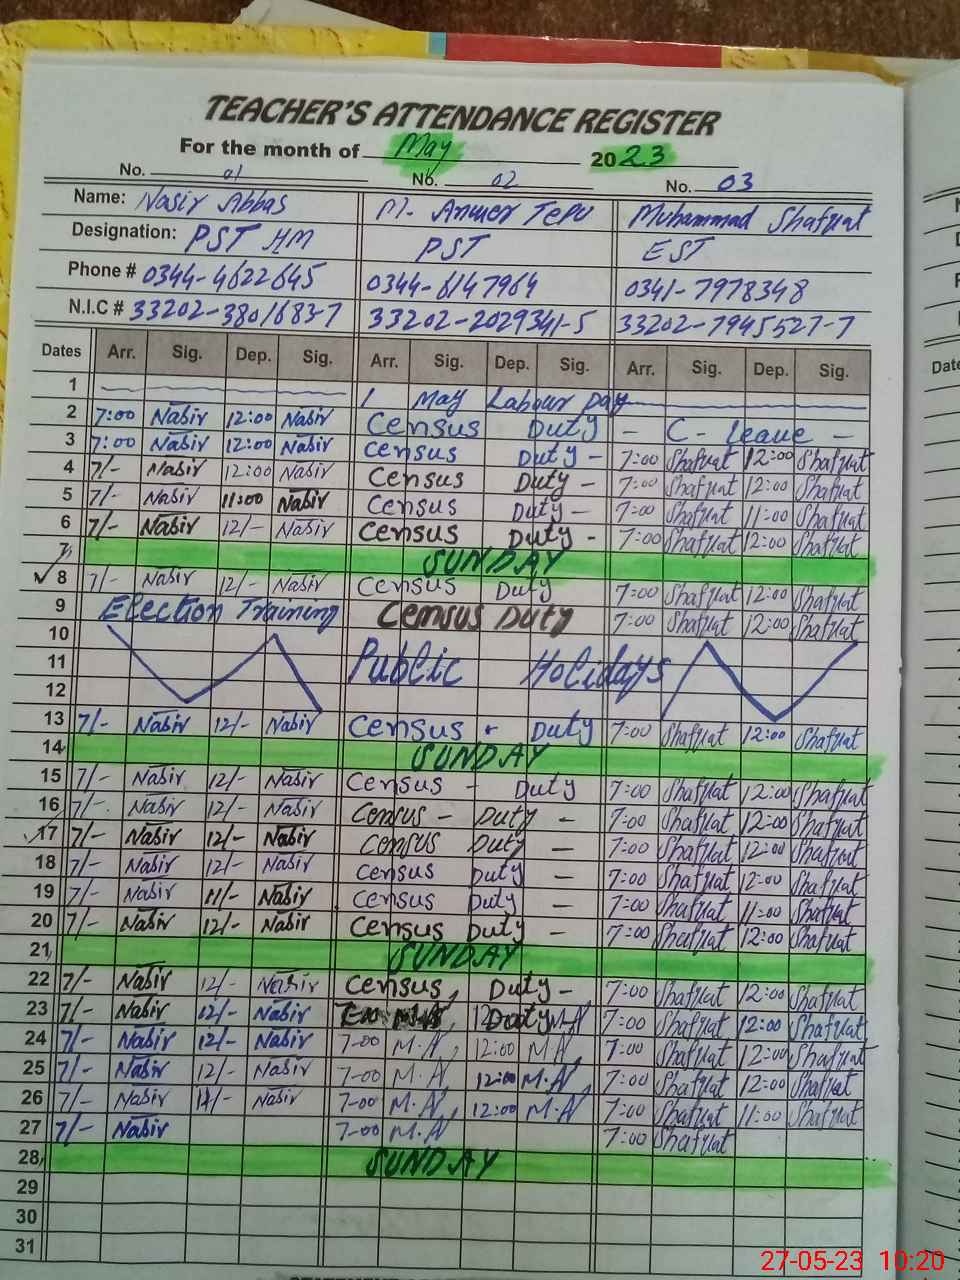 TEACHER'S ATTENDANCE REGISTER
For the month of May 2023
No. 01 No. 02 No. 03
Name: Nasir Abbas M. Anwer Tepu Muhammad Shafqat
Designation: PST HM PST EST
Phone # 0344-4622645 0344-6147964 0341-7978348
N.I.C # 33202-3801683-7 33202-2029341-5 33202-7945527-7
Dates Arr. Sig. Dep. Sig. Arr. Sig. Dep. Sig. Arr. Sig. Dep. Sig.
1 1 May Labour Day
2 7:00 Nasir 12:00 Nasir Census Duty - C-leave -
3 7:00 Nasir 12:00 Nasir Census Duty - 7:00 Shafqat 12:00 Shafqat
4 7/- Nasir 12:00 Nasir Census Duty - 7:00 Shafqat 12:00 Shafqat
5 7/- Nasir 11:00 Nasir Census Duty - 7:00 Shafqat 11:00 Shafqat
6 7/- Nasir 12/- Nasir Census Duty - 7:00 Shafqat 12:00 Shafqat
7 SUNDAY
8 7/- Nasir 12/- Nasir Census Duty 7:00 Shafqat 12:00 Shafqat
9 Election Training Census Duty 7:00 Shafqat 12:00 Shafqat
10
11 Public Holidays
12
13 7/- Nasir 12/- Nasir Census - Duty 7:00 Shafqat 12:00 Shafqat
14 SUNDAY
15 7/- Nasir 12/- Nasir Census - Duty 7:00 Shafqat 12:00 Shafqat
16 7/- Nasir 12/- Nasir Census - Duty - 7:00 Shafqat 12:00 Shafqat
17 7/- Nasir 12/- Nasir Census Duty - 7:00 Shafqat 12:00 Shafqat
18 7/- Nasir 12/- Nasir Census Duty - 7:00 Shafqat 12:00 Shafqat
19 7/- Nasir 11/- Nasir Census Duty - 7:00 Shafqat 11:00 Shafqat
20 7/- Nasir 12/- Nasir Census Duty - 7:00 Shafqat 12:00 Shafqat
21 SUNDAY
22 7/- Nasir 12/- Nasir Census, Duty - 7:00 Shafqat 12:00 Shafqat
23 7/- Nasir 12/- Nasir Duty M.A 7:00 Shafqat 12:00 Shafqat
24 7/- Nasir 12/- Nasir 7-00 M.A 12:00 M.A 7:00 Shafqat 12:00 Shafqat
25 7/- Nasir 12/- Nasir 7-00 M.A 12:00 M.A 7:00 Shafqat 12:00 Shafqat
26 7/- Nasir 11/- Nasir 7-00 M.A 12:00 M.A 7:00 Shafqat 11:00 Shafqat
27 7/- Nasir 7-00 M.A 7:00 Shafqat
28 SUNDAY
29
30
31
27-05-23 10:20